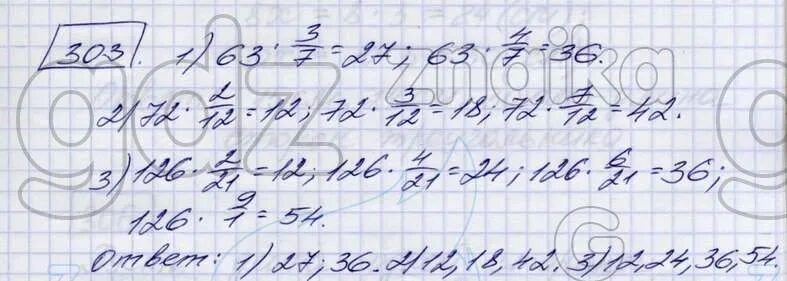 303. 1) 63 · 3/7 = 27; 63 · 4/7 = 36.
2) 72 · 2/12 = 12; 72 · 3/12 = 18; 72 · 7/12 = 42.
3) 126 · 2/21 = 12; 126 · 4/21 = 24; 126 · 6/21 = 36;
126 · 9/1 = 54.
Ответ: 1) 27; 36. 2) 12, 18, 42. 3) 12, 24, 36, 54.
gdz znaika g
G